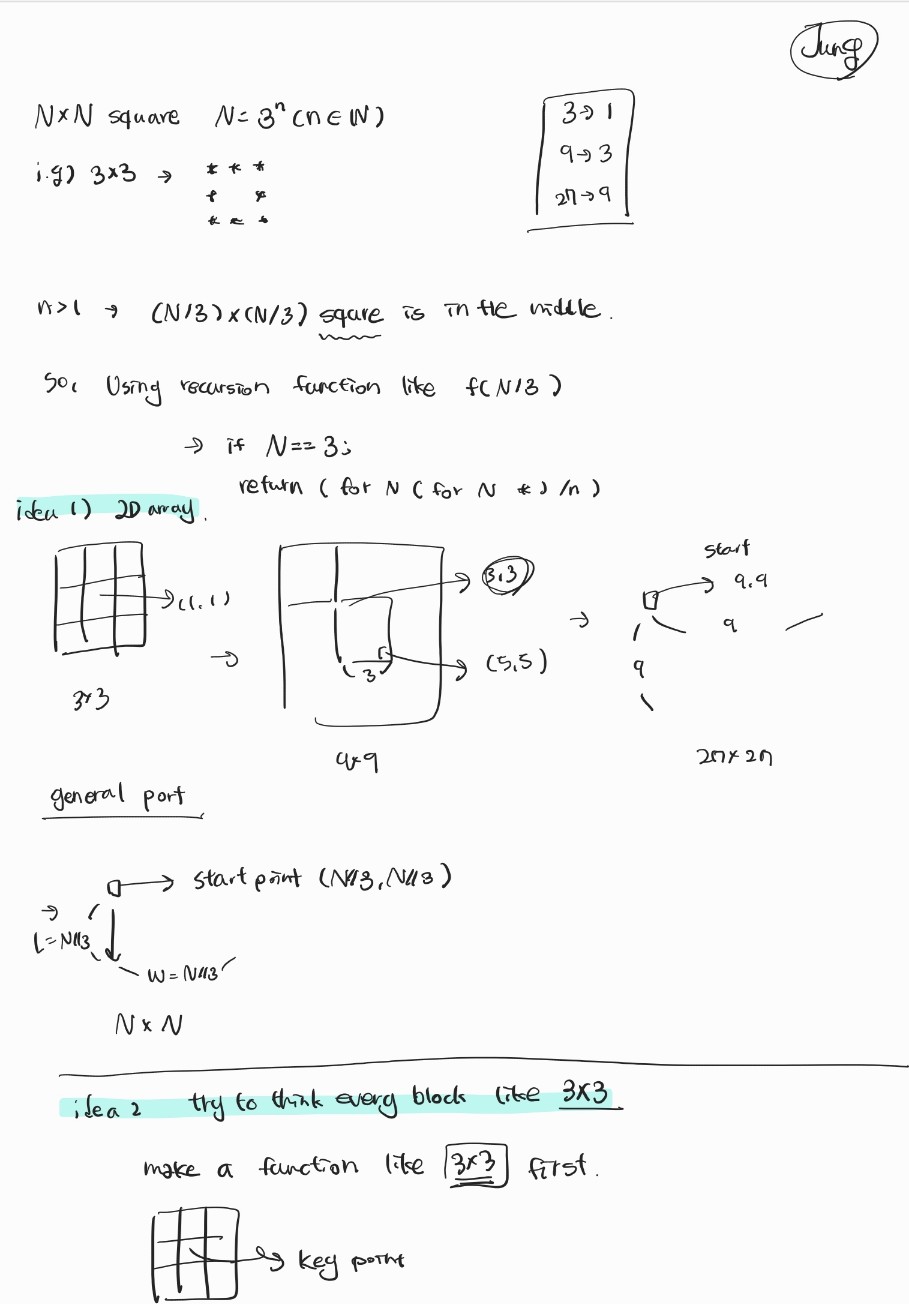 Jung
N×N square N = 3ⁿ (n ∈ ℕ)
3 → 1
9 → 3
27 → 9
i.g) 3×3 → * * *
* *
* * *
n>1 → (N/3)×(N/3) sqare is in the middle.
So, Using recursion function like f(N/3)
→ if N == 3;
return ( for N ( for N * ) /n )
idea 1) 2D array.
(1,1)
3×3
→
3,3
(5,5)
3
9×9
→
start
9,9
9
9
27×27
general port
→ start point (N//3, N//3)
→
L = N//3
W = N//3
N × N
idea 2 try to think every block like 3×3
make a function like 3×3 first.
key point